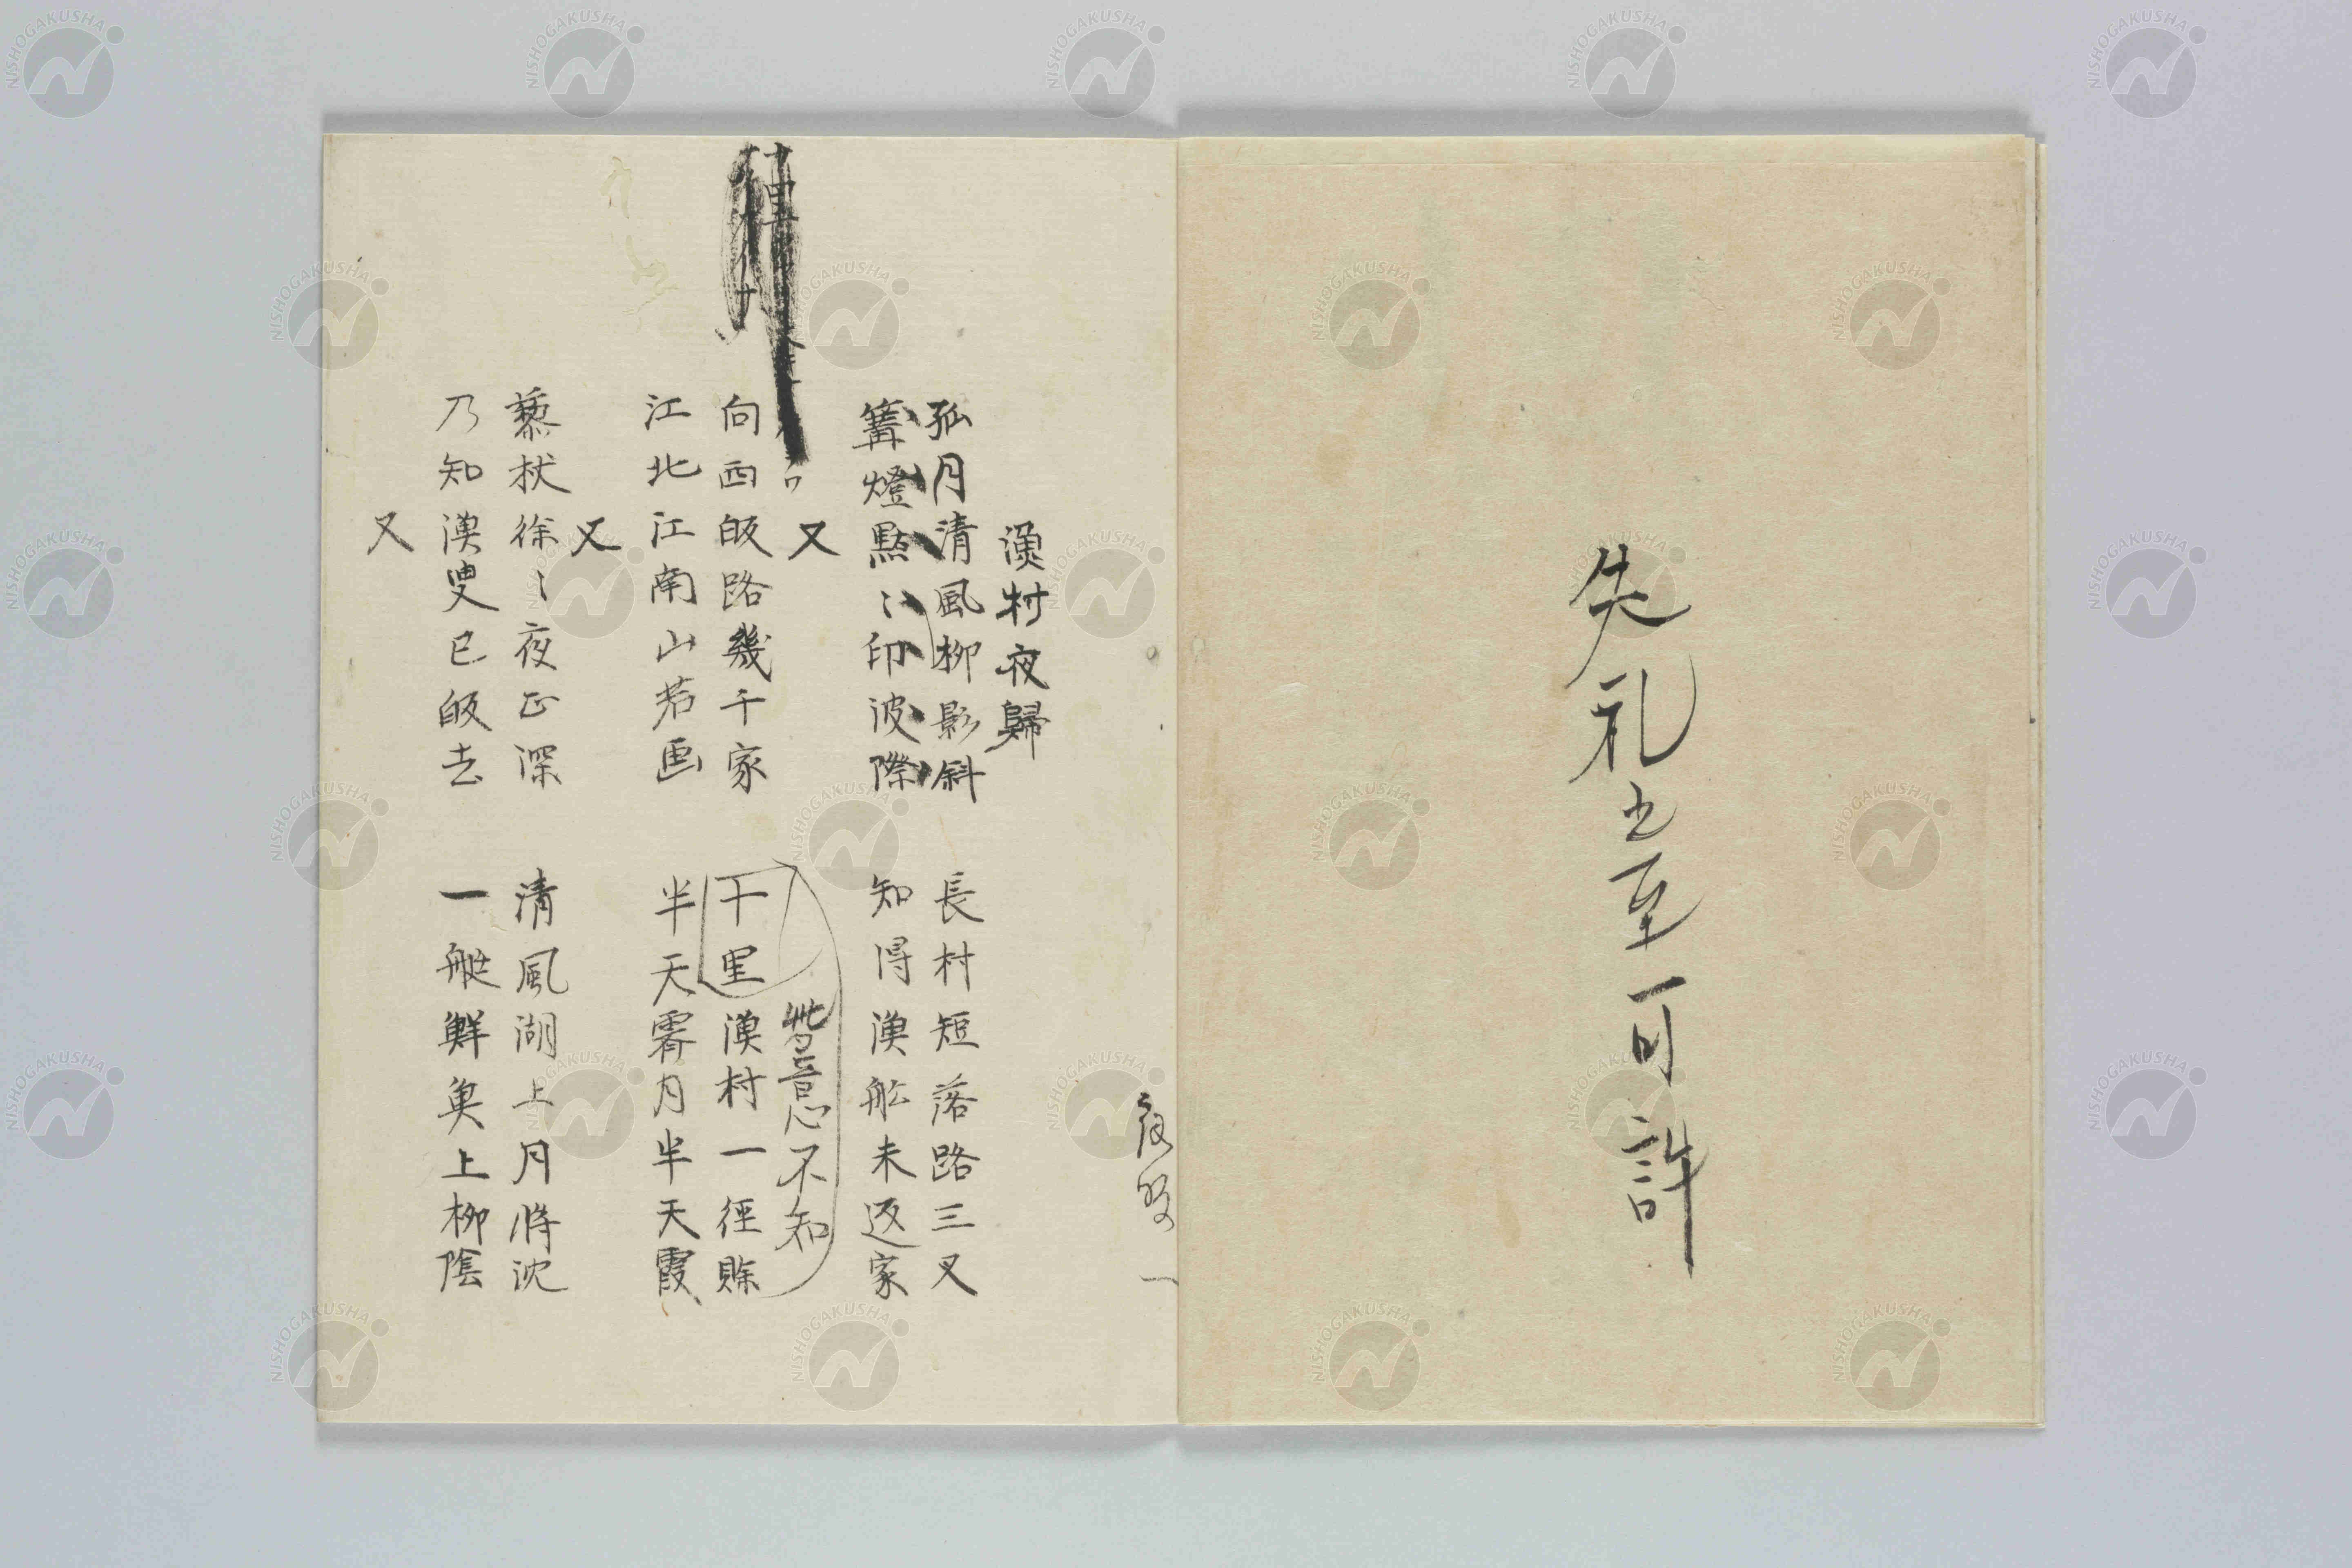 先礼之至可許
漁村夜歸
孤月清風柳影斜 長村短落路三叉
篝燈點〻印波際 知得漁舩未返家
又
此意不知
向西皈路幾千家 十里漁村一徑賒
江北江南山若画 半天霽月半天霞
又
藜杖徐〻夜正深 清風湖上月將沈
乃知漁叟已皈去 一艇鮮魚上柳陰
又
NISHOGAKUSHA